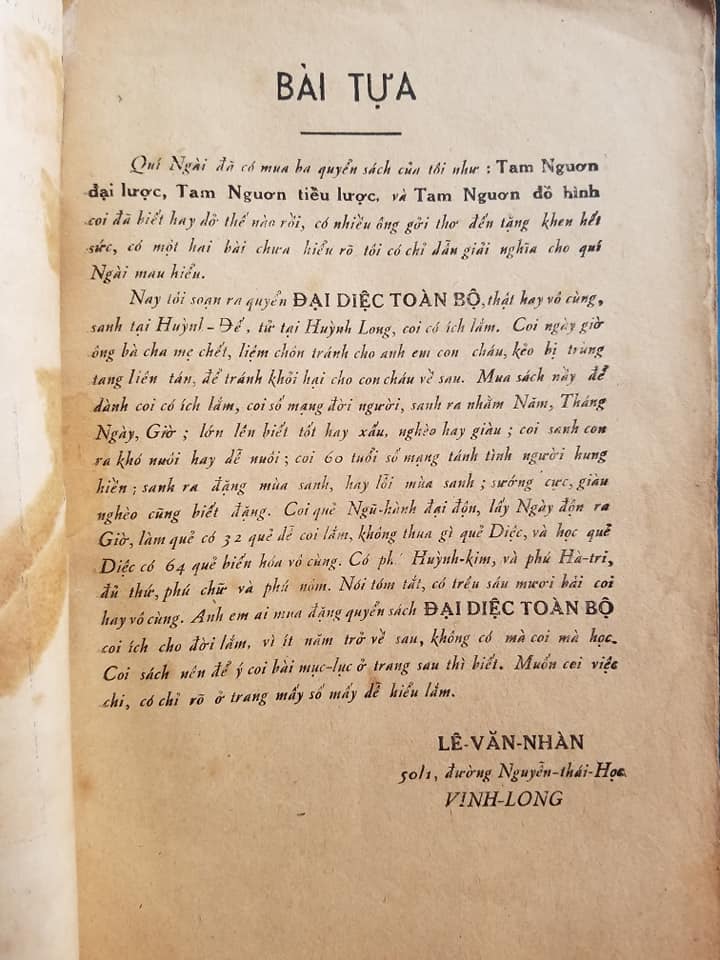 BÀI TỰA
Quí Ngài đã có mua ba quyển sách của tôi như : Tam Nguơn
đại lược, Tam Nguơn tiều lược, và Tam Nguơn đồ hình
coi đã biết hay dở thế nào rồi, có nhiều ông gởi thơ đến tặng khen hết
sức, có một hai bài chưa hiểu rõ tôi có chỉ dẫn giải nghĩa cho quí
Ngài mau hiểu.
Nay tôi soạn ra quyển ĐẠI DIỆC TOÀN BỘ, thật hay vô cùng,
sanh tại Huỳnh-Đế, tử tại Huỳnh Long, coi có ích lắm. Coi ngày giờ
ông bà cha mẹ chết, liệm chôn tránh cho anh em con cháu, kẻo bị trùng
tang liên tán, để tránh khỏi hại cho con cháu về sau. Mua sách nầy để
dành coi có ích lắm, coi số mạng đời người, sanh ra nhằm Năm, Tháng
Ngày, Giờ ; lớn lên biết tốt hay xấu, nghèo hay giàu ; coi sanh con
ra khó nuôi hay dễ nuôi ; coi 60 tuổi số mạng tánh tình người hung
hiền ; sanh ra đặng mùa sanh, hay lỗi mùa sanh ; sướng cực, giàu
nghèo cũng biết đặng. Coi quẻ Ngũ-hành đại độn, lấy Ngày độn ra
Giờ, làm quẻ có 32 quẻ dễ coi lắm, không thua gì quẻ Diệc, và học quẻ
Diệc có 64 quẻ biến hóa vô cùng. Có ph Huỳnh-kim, và phú Hà-tri,
đủ thứ, phú chữ và phú nôm. Nói tóm tắt, có trều sáu mươi bài coi
hay vô cùng. Anh em ai mua đặng quyển sách ĐẠI DIỆC TOÀN BỘ
coi ích cho đời lắm, vì ít năm trở về sau, không có mà coi mà học.
Coi sách nên để ý coi bài mục-lục ở trang sau thì biết. Muốn coi việc
chi, có chỉ rõ ở trang mấy số mấy dễ hiểu lắm.
LÊ-VĂN-NHÀN
50/1, đường Nguyễn-thái-Học
VINH-LONG